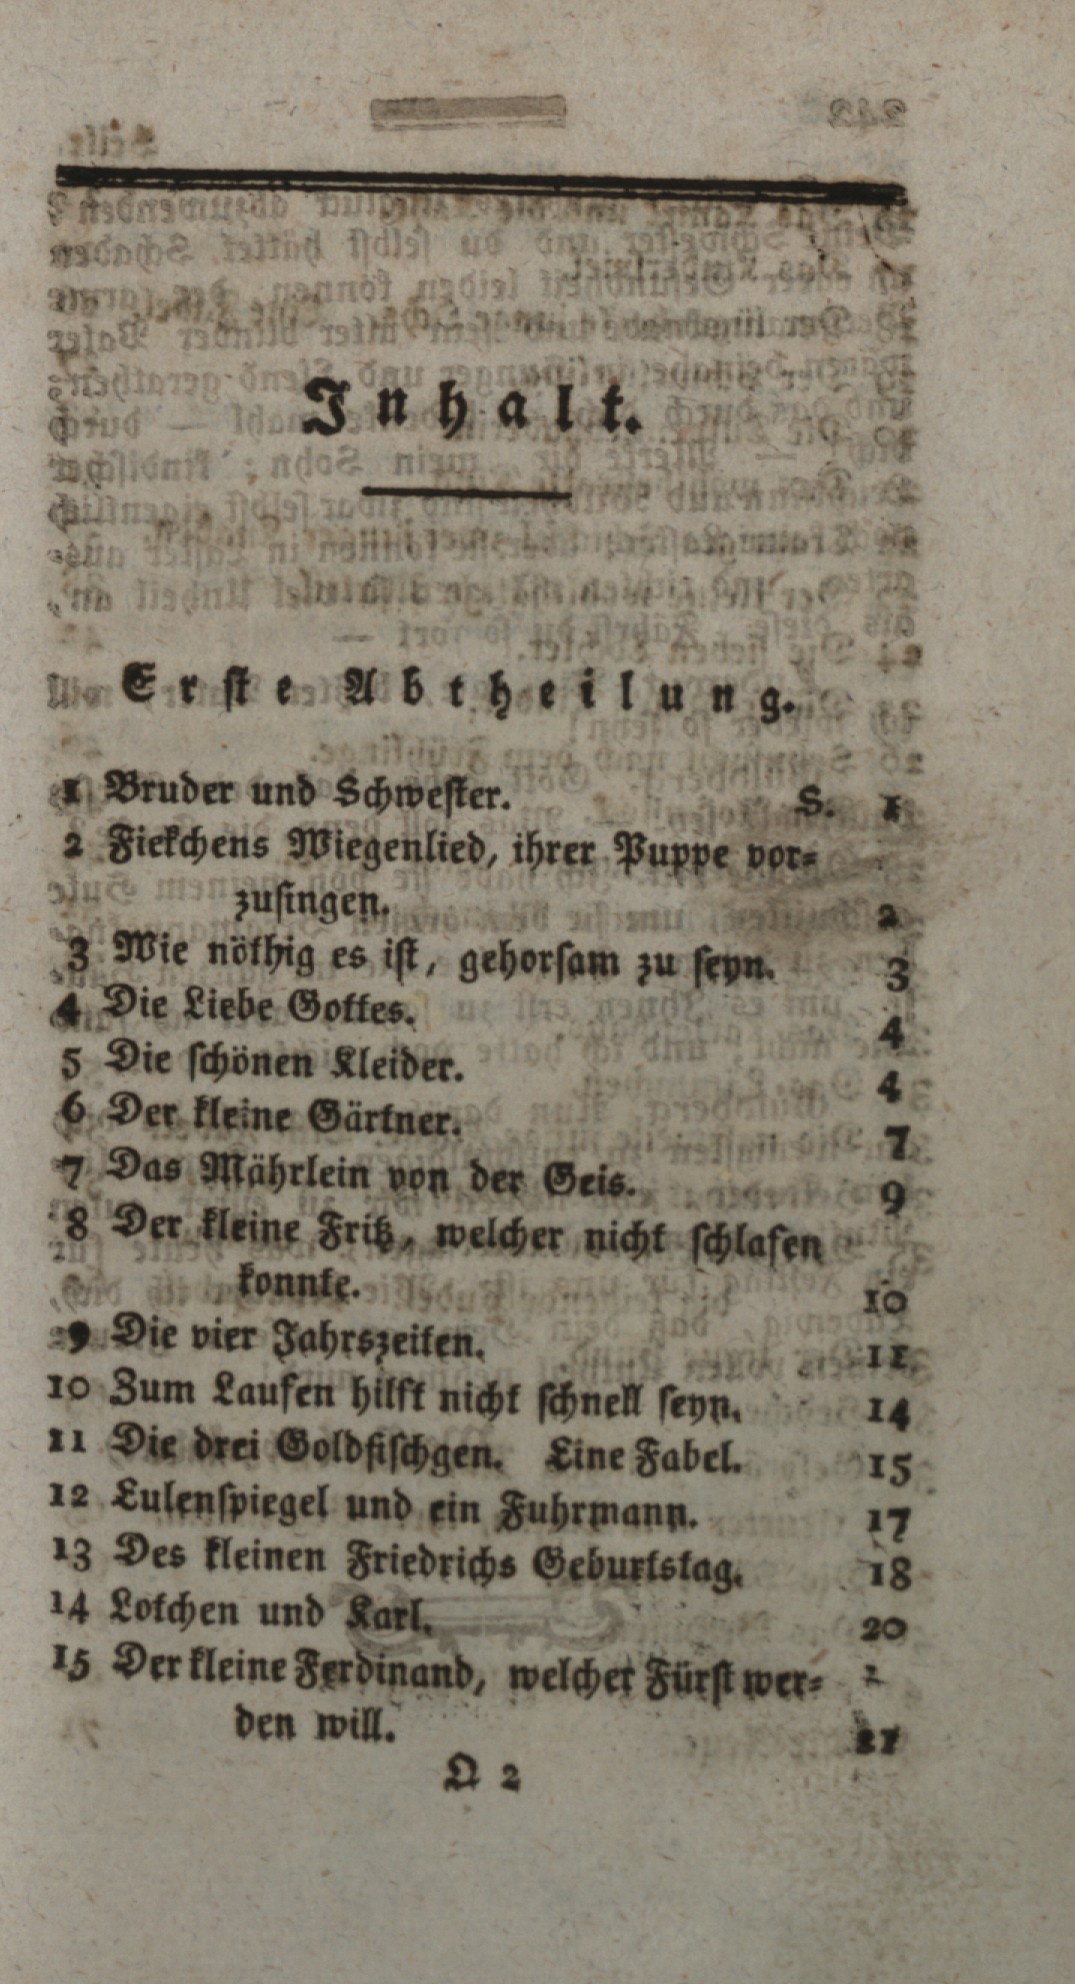 Inhalt.
Erste Abtheilung.
1 Bruder und Schwester. S. 1
2 Fiekchens Wiegenlied, ihrer Puppe vor-
zusingen. 2
3 Wie nöthig es ist, gehorsam zu seyn. 3
4 Die Liebe Gottes. 4
5 Die schönen Kleider. 4
6 Der kleine Gärtner. 7
7 Das Mährlein von der Geis. 9
8 Der kleine Fritz, welcher nicht schlafen
konnte. 10
9 Die vier Jahrszeiten. 11
10 Zum Laufen hilft nicht schnell seyn. 14
11 Die drei Goldfischgen. Eine Fabel. 15
12 Eulenspiegel und ein Fuhrmann. 17
13 Des kleinen Friedrichs Geburtstag. 18
14 Lotchen und Karl. 20
15 Der kleine Ferdinand, welcher Fürst wer-
den will. 21
Q 2